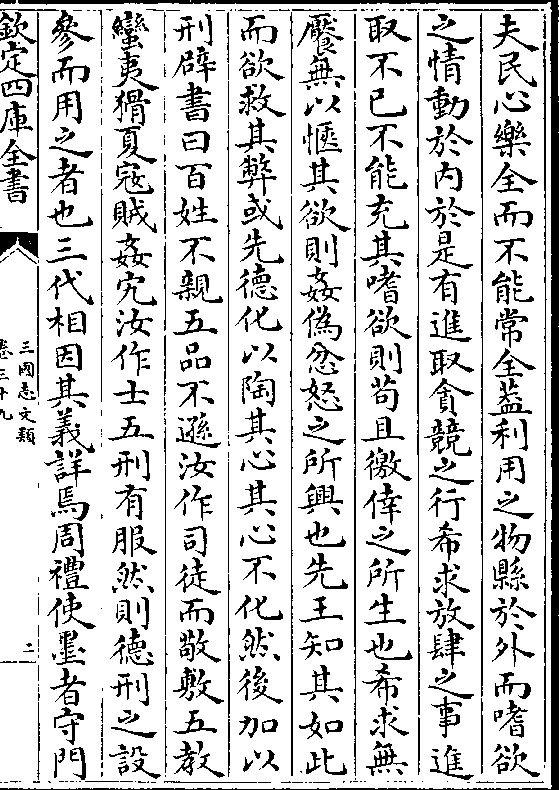 夫民心樂全而不能常全葢利用之物縣於外而嗜欲
之情動於内於是有進取貪競之行希求放肆之事進
取不已不能充其嗜欲則苟且徼倖之所生也希求無
厭無以愜其欲則姦偽忿怒之所興也先王知其如此
而欲救其弊或先德化以陶其心其心不化然後加以
刑辟書曰百姓不親五品不遜汝作司徒而敬敷五教
蠻夷猾夏寇賊姦宄汝作士五刑有服然則德刑之設
參而用之者也三代相因其義詳焉周禮使墨者守門
欽定四庫全書
三國志文類
卷三十九
二